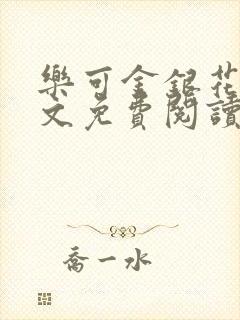 樂可金銀花
文免費閱讀
喬一水